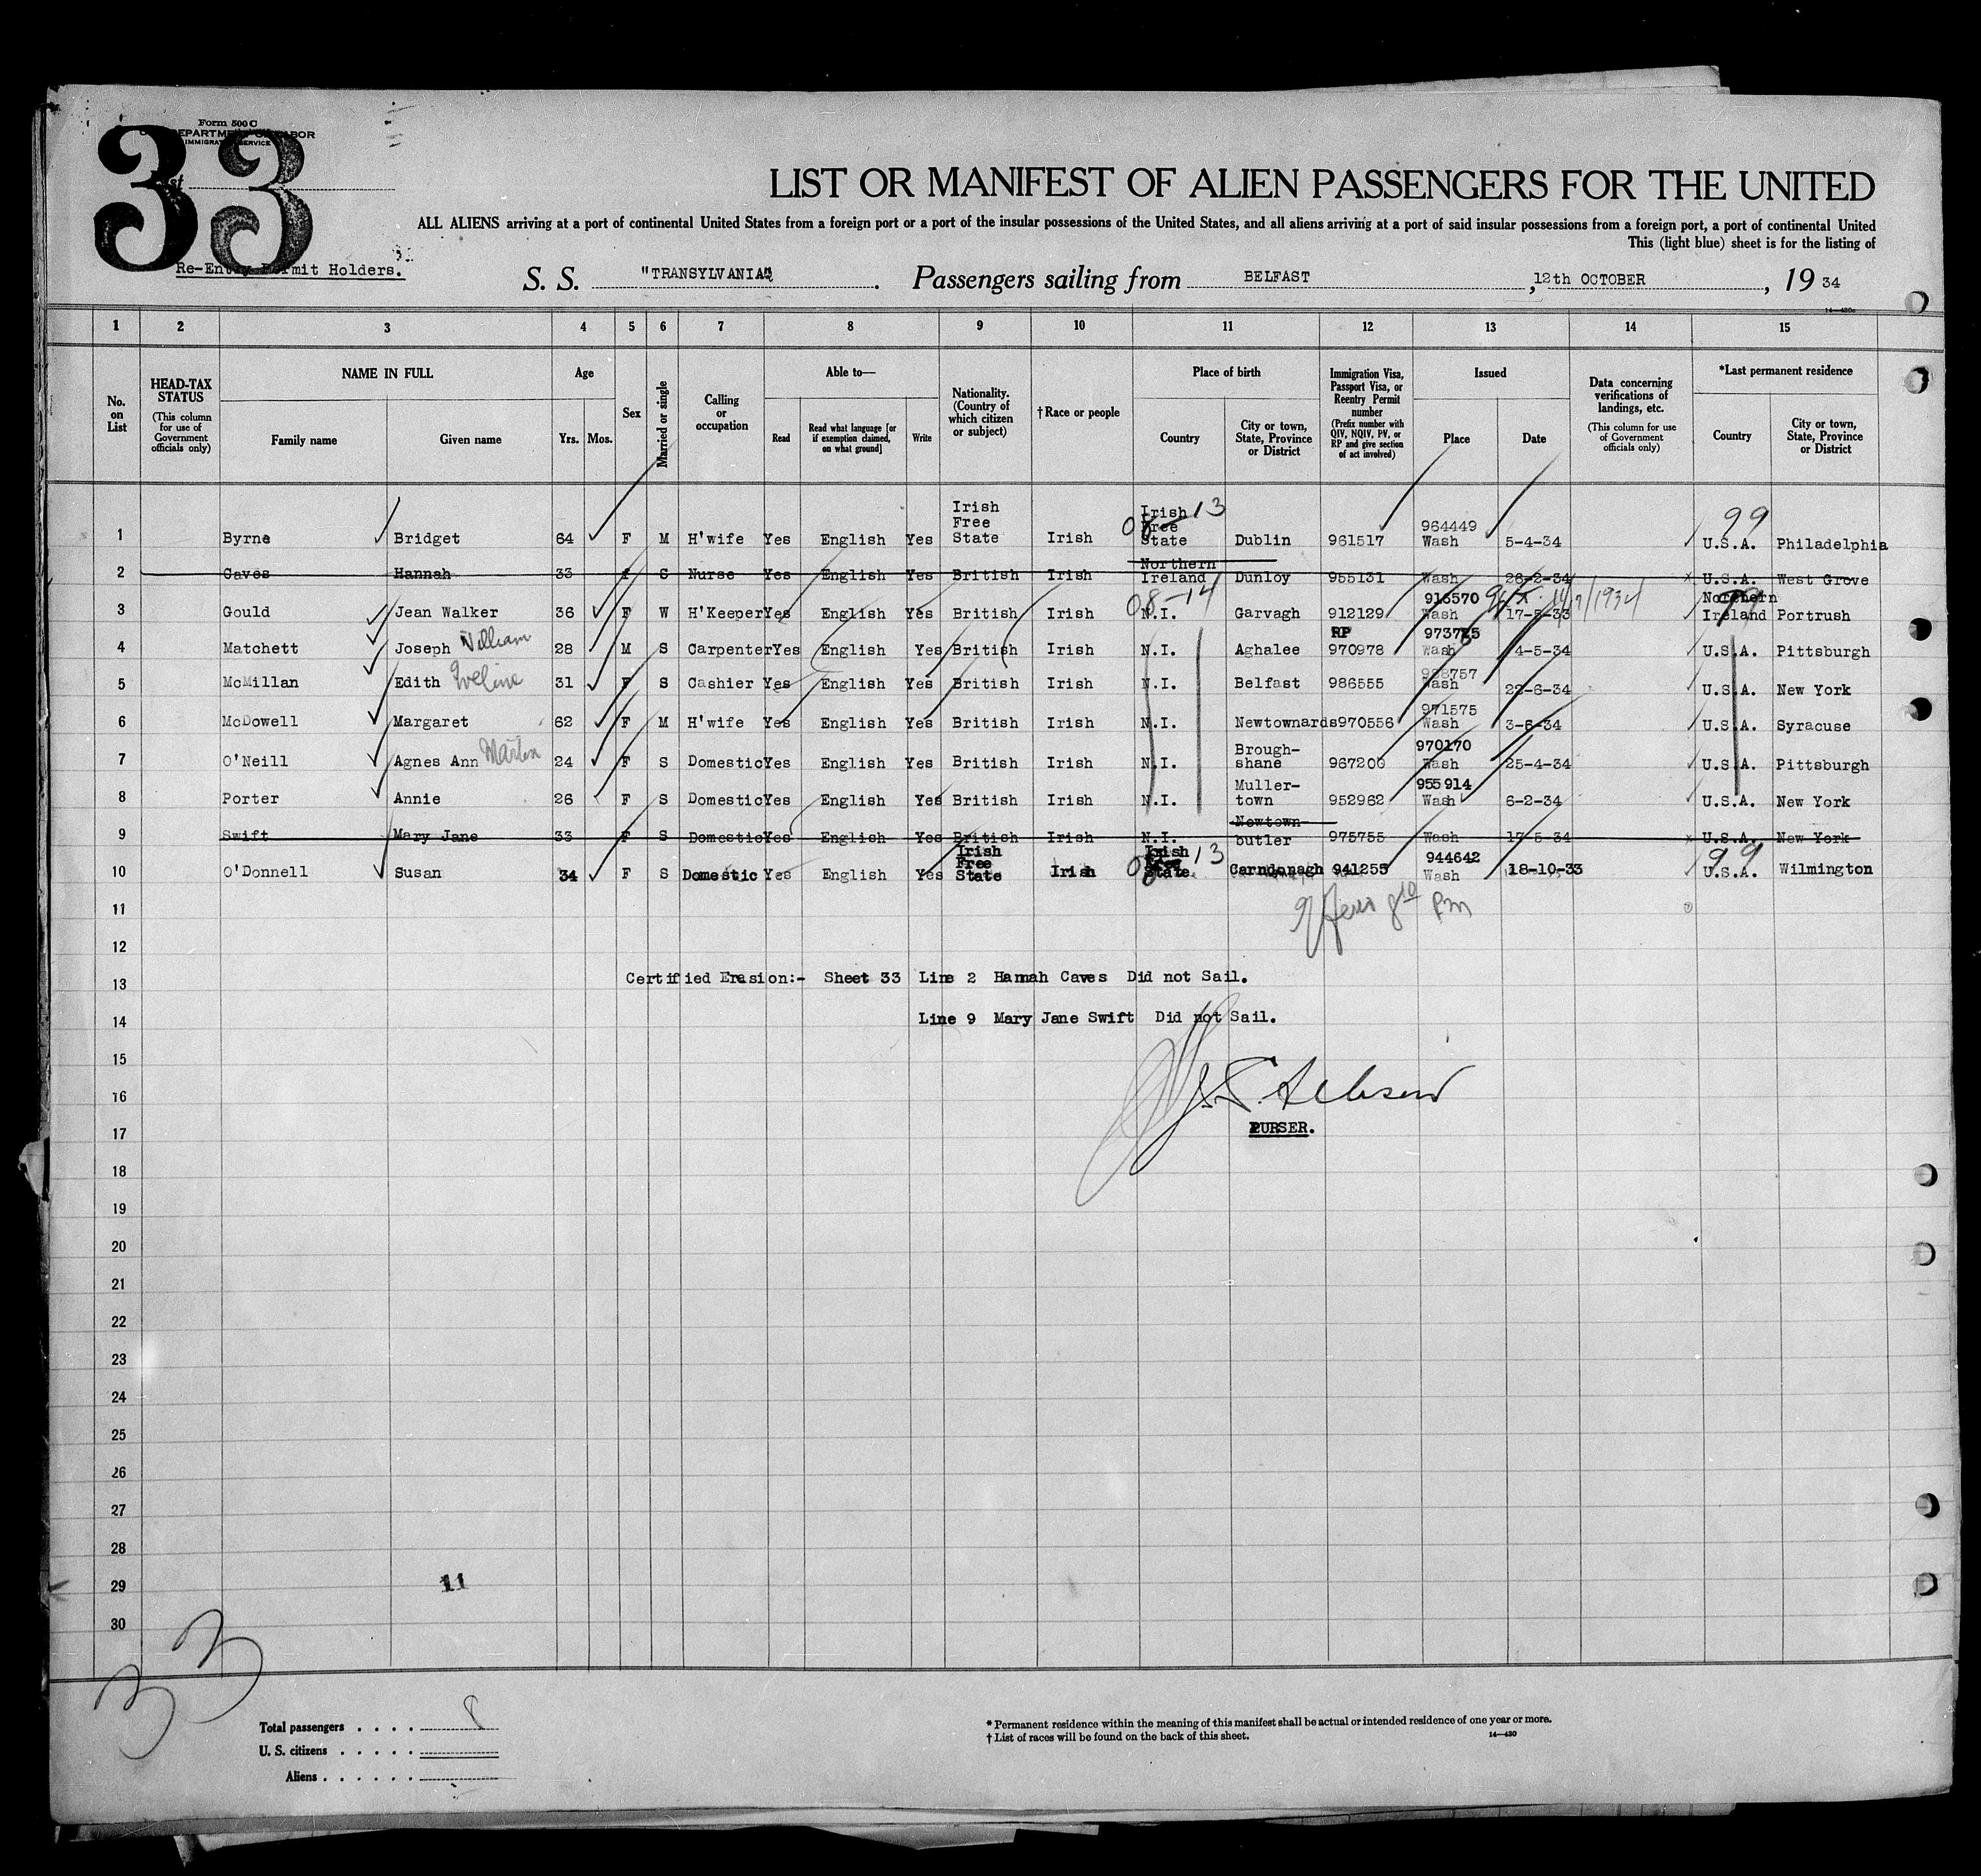 33
Form 500 C
U. S. DEPARTMENT OF LABOR
IMMIGRATION SERVICE
List
Re-Entry Permit Holders.
LIST OR MANIFEST OF ALIEN PASSENGERS FOR THE UNITED
ALL ALIENS arriving at a port of continental United States from a foreign port or a port of the insular possessions of the United States, and all aliens arriving at a port of said insular possessions from a foreign port, a port of continental United
This (light blue) sheet is for the listing of
S. S. "TRANSYLVANIA". Passengers sailing from BELFAST, 12th OCTOBER, 19 34
14—430c
1 2 3 4 5 6 7 8 9 10 11 12 13 14 15
No. on List
HEAD-TAX STATUS (This column for use of Government officials only)
NAME IN FULL
Family name Given name
Age
Yrs. Mos.
Sex
Married or single
Calling or occupation
Able to—
Read Read what language [or if exemption claimed, on what ground] Write
Nationality. (Country of which citizen or subject)
†Race or people
Place of birth
Country City or town, State, Province or District
Immigration Visa, Passport Visa, or Reentry Permit number (Prefix number with QIV, NQIV, PV, or RP and give section of act involved)
Issued
Place Date
Data concerning verifications of landings, etc. (This column for use of Government officials only)
*Last permanent residence
Country City or town, State, Province or District
1 Byrne Bridget 64 F M H'wife Yes English Yes Irish Free State Irish Irish Free State 08-13 Dublin 961517 964449 Wash 5-4-34 99 U.S.A. Philadelphia
2 Caves Hannah 33 F S Nurse Yes English Yes British Irish Northern Ireland Dunloy 955131 Wash 26-2-34 x U.S.A. West Grove
3 Gould Jean Walker 36 F W H'Keeper Yes English Yes British Irish 08-14 N.I. Garvagh 912129 915570 Wash 17-5-33 Northern Ireland Portrush
4 Matchett Joseph William 28 M S Carpenter Yes English Yes British Irish N.I. Aghalee RP 970978 Wash 4-5-34 U.S.A. Pittsburgh
5 McMillan Edith Eveline 31 F S Cashier Yes English Yes British Irish N.I. Belfast 986555 Wash 22-6-34 U.S.A. New York
6 McDowell Margaret 62 F M H'wife Yes English Yes British Irish N.I. Newtownards 970556 971575 Wash 3-5-34 U.S.A. Syracuse
7 O'Neill Agnes Ann Martin 24 F S Domestic Yes English Yes British Irish N.I. Brough-shane 967200 970170 Wash 25-4-34 U.S.A. Pittsburgh
8 Porter Annie 26 F S Domestic Yes English Yes British Irish N.I. Muller-town 952962 955914 Wash 6-2-34 U.S.A. New York
9 Swift Mary Jane 33 F S Domestic Yes English Yes British Irish N.I. Newtown-butler 975755 Wash 17-5-34 x U.S.A. New York
10 O'Donnell Susan 34 F S Domestic Yes English Yes Irish Free State Irish Irish Free State 08 13 Carndonagh 941255 944642 Wash 18-10-33 99 U.S.A. Wilmington
11
12
13 Certified Erasion:- Sheet 33 Line 2 Hannah Caves Did not Sail.
14 Line 9 Mary Jane Swift Did not Sail.
15
16
17 PURSER.
18
19
20
21
22
23
24
25
26
27
28
29 11
30
33
Total passengers . . . . 8
U. S. citizens . . . . .
Aliens . . . . . .
* Permanent residence within the meaning of this manifest shall be actual or intended residence of one year or more.
† List of races will be found on the back of this sheet.
14—430